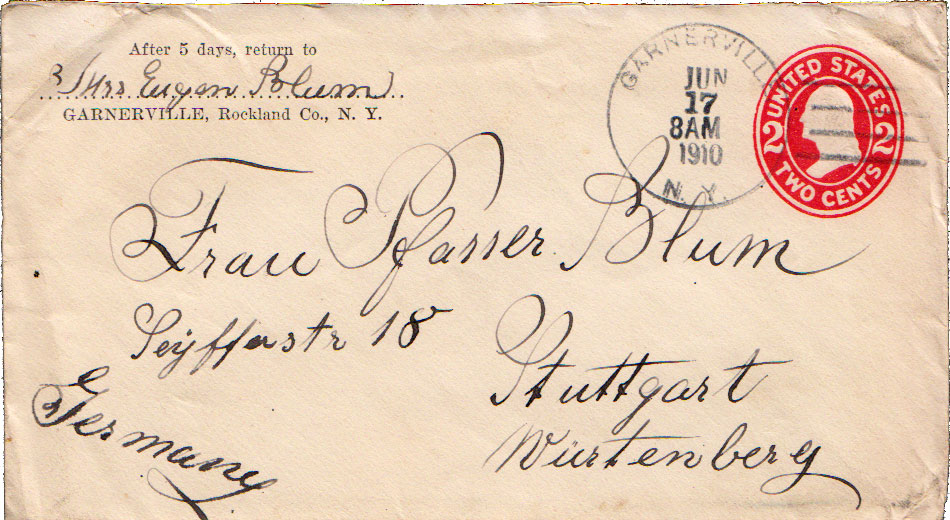 After 5 days, return to
Mrs Eugen Blum
GARNERVILLE, Rockland Co., N. Y.
GARNERVILLE
JUN
17
8AM
1910
N. Y.
UNITED STATES
2 2
TWO CENTS
Frau Pfarrer Blum
Seyfferstr 18
Stuttgart
Würtenberg
Germany